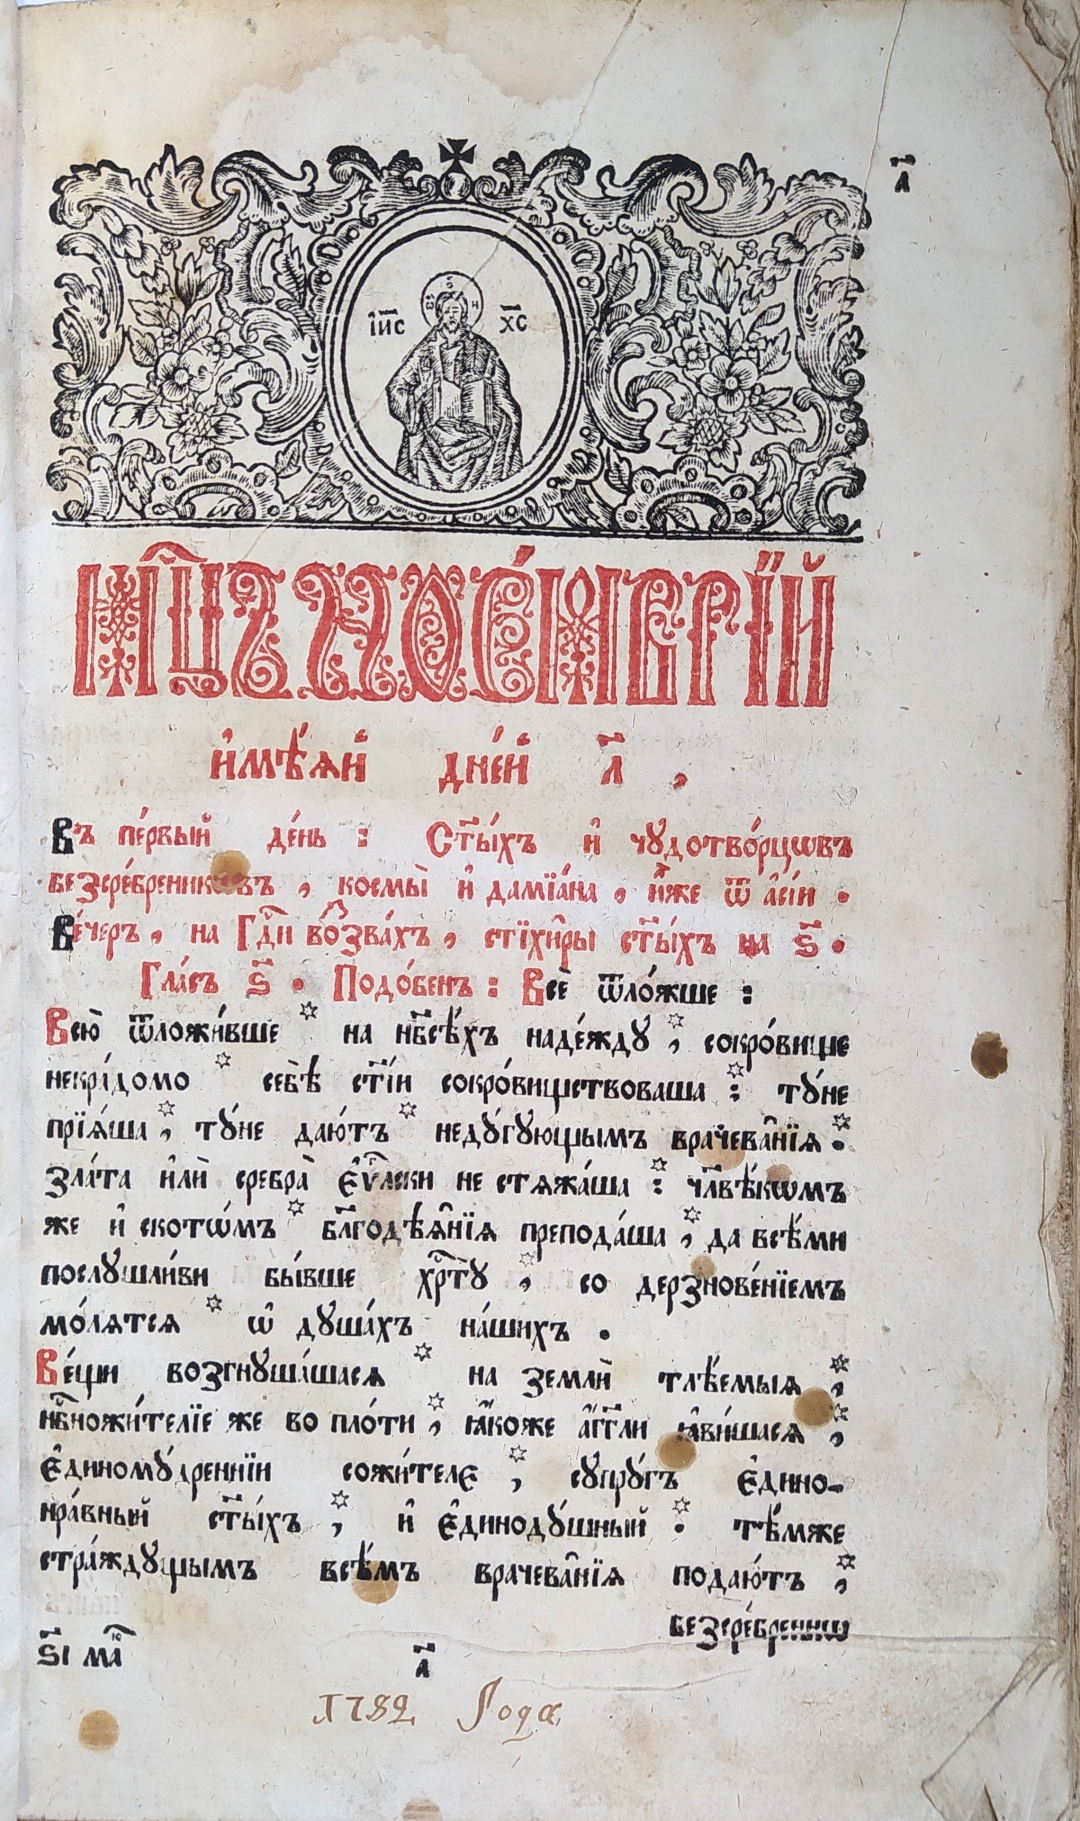 а҃
І҆и҃с х҃с
М҃цъ ноє́мврїй
и҆мѣ́ѧй дне́й л҃ ,
Въ пе́рвый де́нь : Ст҃ы́хъ и҆ чꙋдотво́рцѡвъ
безсре́бреникѡвъ , космы̀ и҆ дамїа́на , и҆̀же ѿ а҆сі́и .
Ве́черъ , на Гдⷭ҇и возва́хъ , стїхи̑ры ст҃ы́хъ на ѕ҃ .
Гла́съ ѕ҃ . Подо́бенъ : Всѐ ѿло́жше :
Всю̀ ѿложи́вше * на нб҃сѣ́хъ наде́ждꙋ , * сокро́вище
некра́домо * себѣ̀ ст҃і́и сокро́виществоваша : * тꙋ́не
прїѧ́ша , * тꙋ́не даю́тъ * недꙋ́гꙋющымъ врачева̑нїѧ . *
зла́та и҆лѝ сребра̀ є҆ѵⷢ҇лски не стѧжа́ша : * чл҃вѣ́кѡмъ
же и҆ скотѡ́мъ * бл҃годѣѧ̑нїѧ препода́ша , * да всѣ́ми
послꙋшли́ви бы́вше хрⷭ҇тꙋ̀ , * со дерзнове́нїемъ
мо́лѧтсѧ * ѡ҆ дꙋша́хъ на́шихъ .
Ве́щи возгнꙋша́шасѧ * на землѝ тлѣ́емыѧ , *
нб҃ножи́телїе же во пло́ти , * ꙗ҆́коже а҆́гг҃ли ꙗ҆ви́шасѧ , *
є҆диномꙋ́дреннїи сожи́телє , * сꙋпрꙋ́гъ є҆дино-
нра́вный ст҃ы́хъ , * и҆ є҆динодꙋ́шный . * тѣ́мже
стра́ждꙋщымъ всѣ̑мъ врачева̑нїѧ подаю́тъ , *
безсре́бренни
ѕ҃і ма҃ а҃
1782 Года